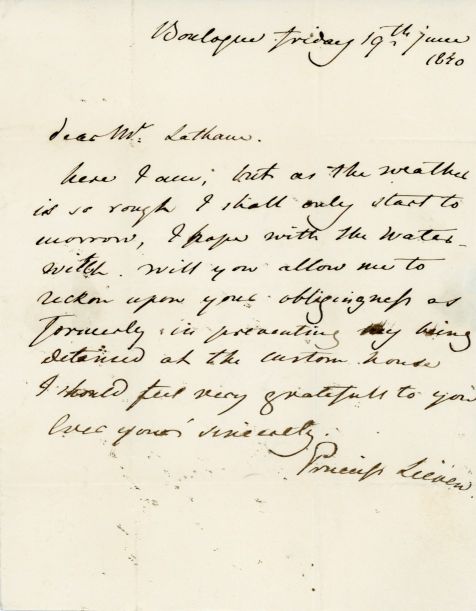 Boulogne friday 19th june
1840
dear Mr. Latham.
here I am; but as the weather
is so rough I shall only start to
morrow, I hope with the Water-
witch. will you allow me to
reckon upon your obligingness as
formerly in preventing my being
detained at the custom house
I should feel very gratefull to you
Ever yours sincerely.
Princess Lieven.